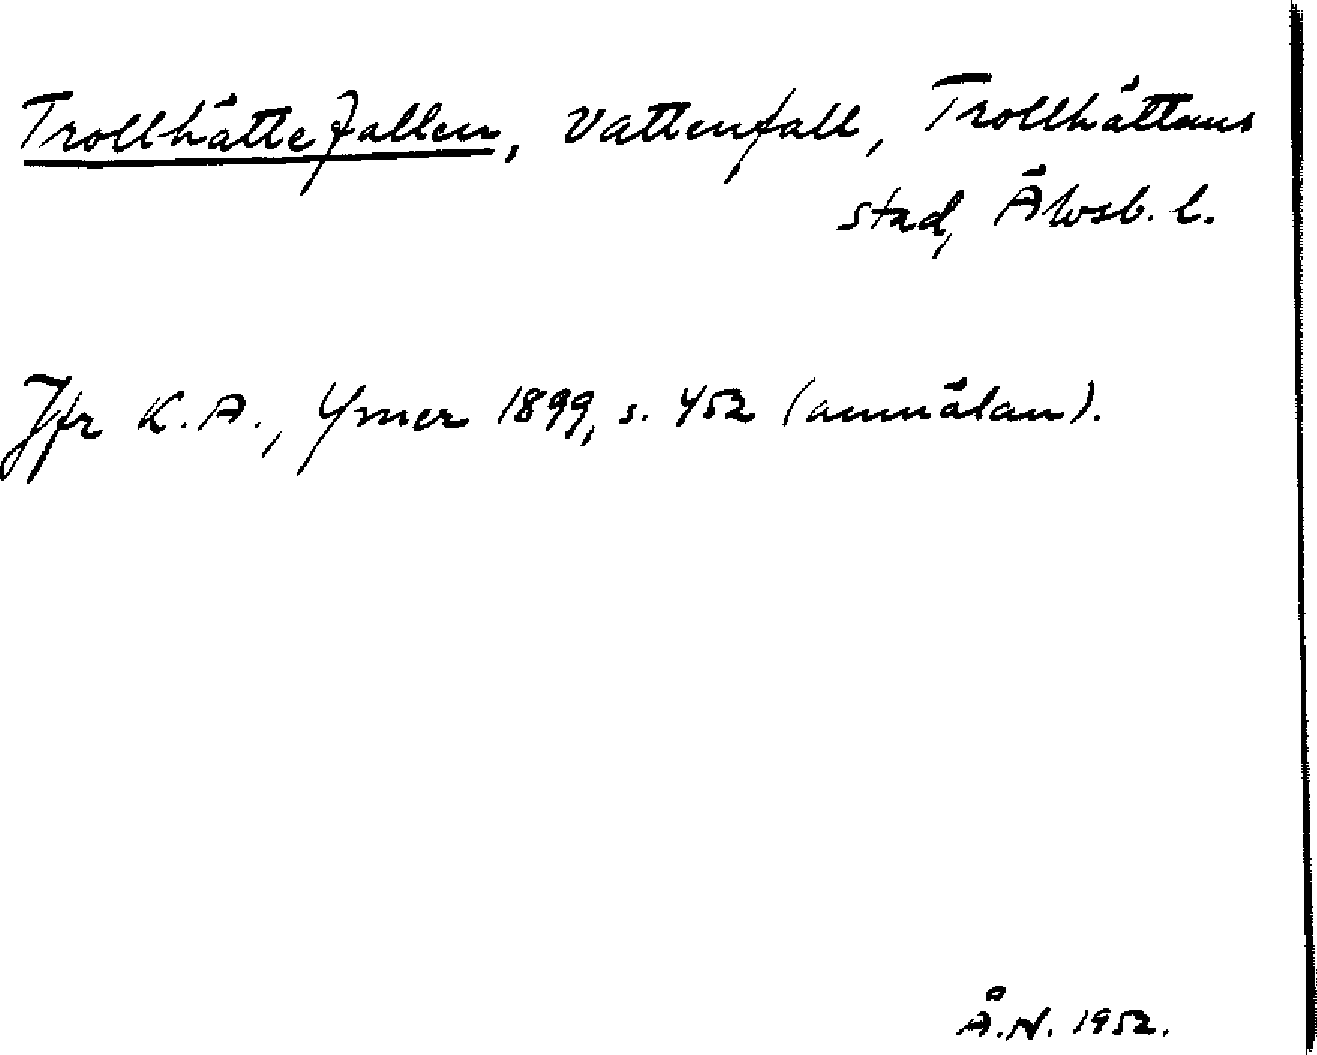 Trollhättefallen, vattenfall, Trollhättans
stad, Älvsb. l.
Jfr K. A., Ymer 1899, s. 452 (anmälan).
Å. N. 1952.